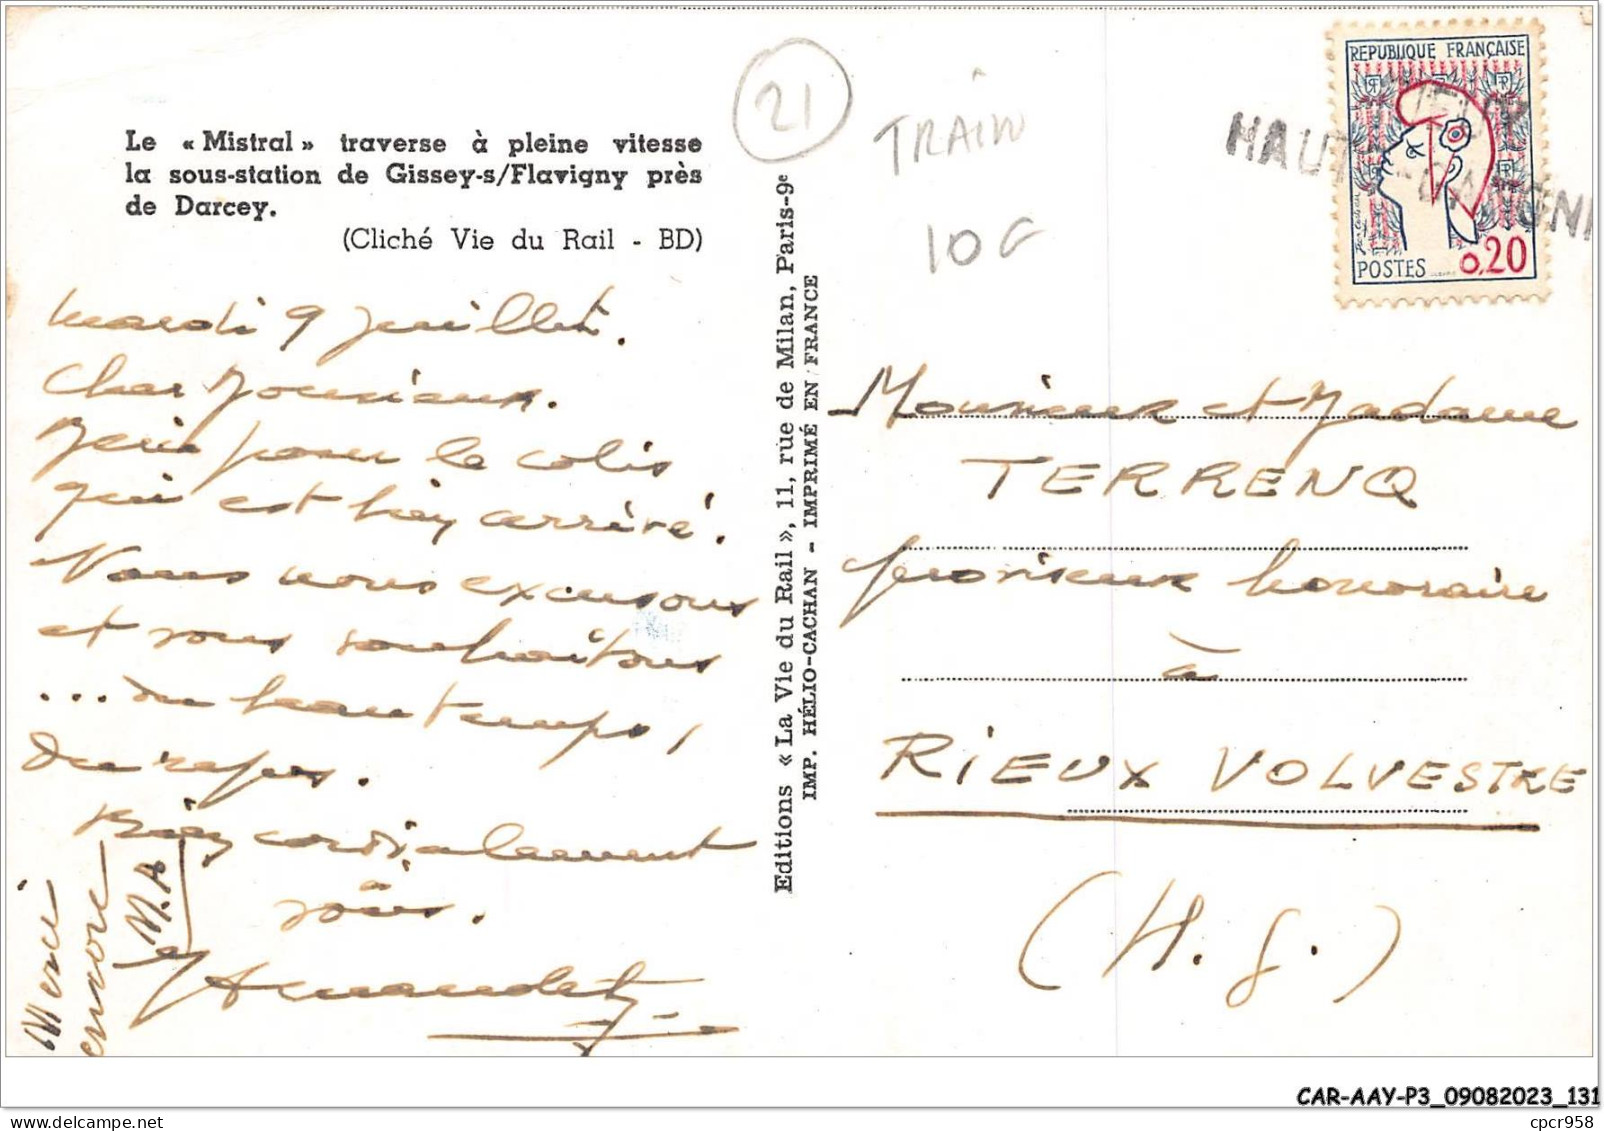 Le « Mistral » traverse à pleine vitesse
la sous-station de Gissey-s/Flavigny près
de Darcey.
(Cliché Vie du Rail - BD)
mardi 9 juillet.
Cher Monsieur.
Merci pour le colis
qui est bien arrivé.
Nous nous excusons
et vous souhaitons
... du beau temps,
du repos.
Bien cordialement
vôtre.
Merci
encore
M.A
Editions « La Vie du Rail », 11, rue de Milan, Paris-9e
IMP. HÉLIO-CACHAN - IMPRIMÉ EN FRANCE
21
TRAIN
10
REPUBLIQUE FRANÇAISE
POSTES 0,20
HAUTE-GARONN
Monsieur et Madame
TERRENQ
honoraire
à
RIEUX VOLVESTRE
(H. G.)
CAR-AAY-P3_09082023_131
cpcr958